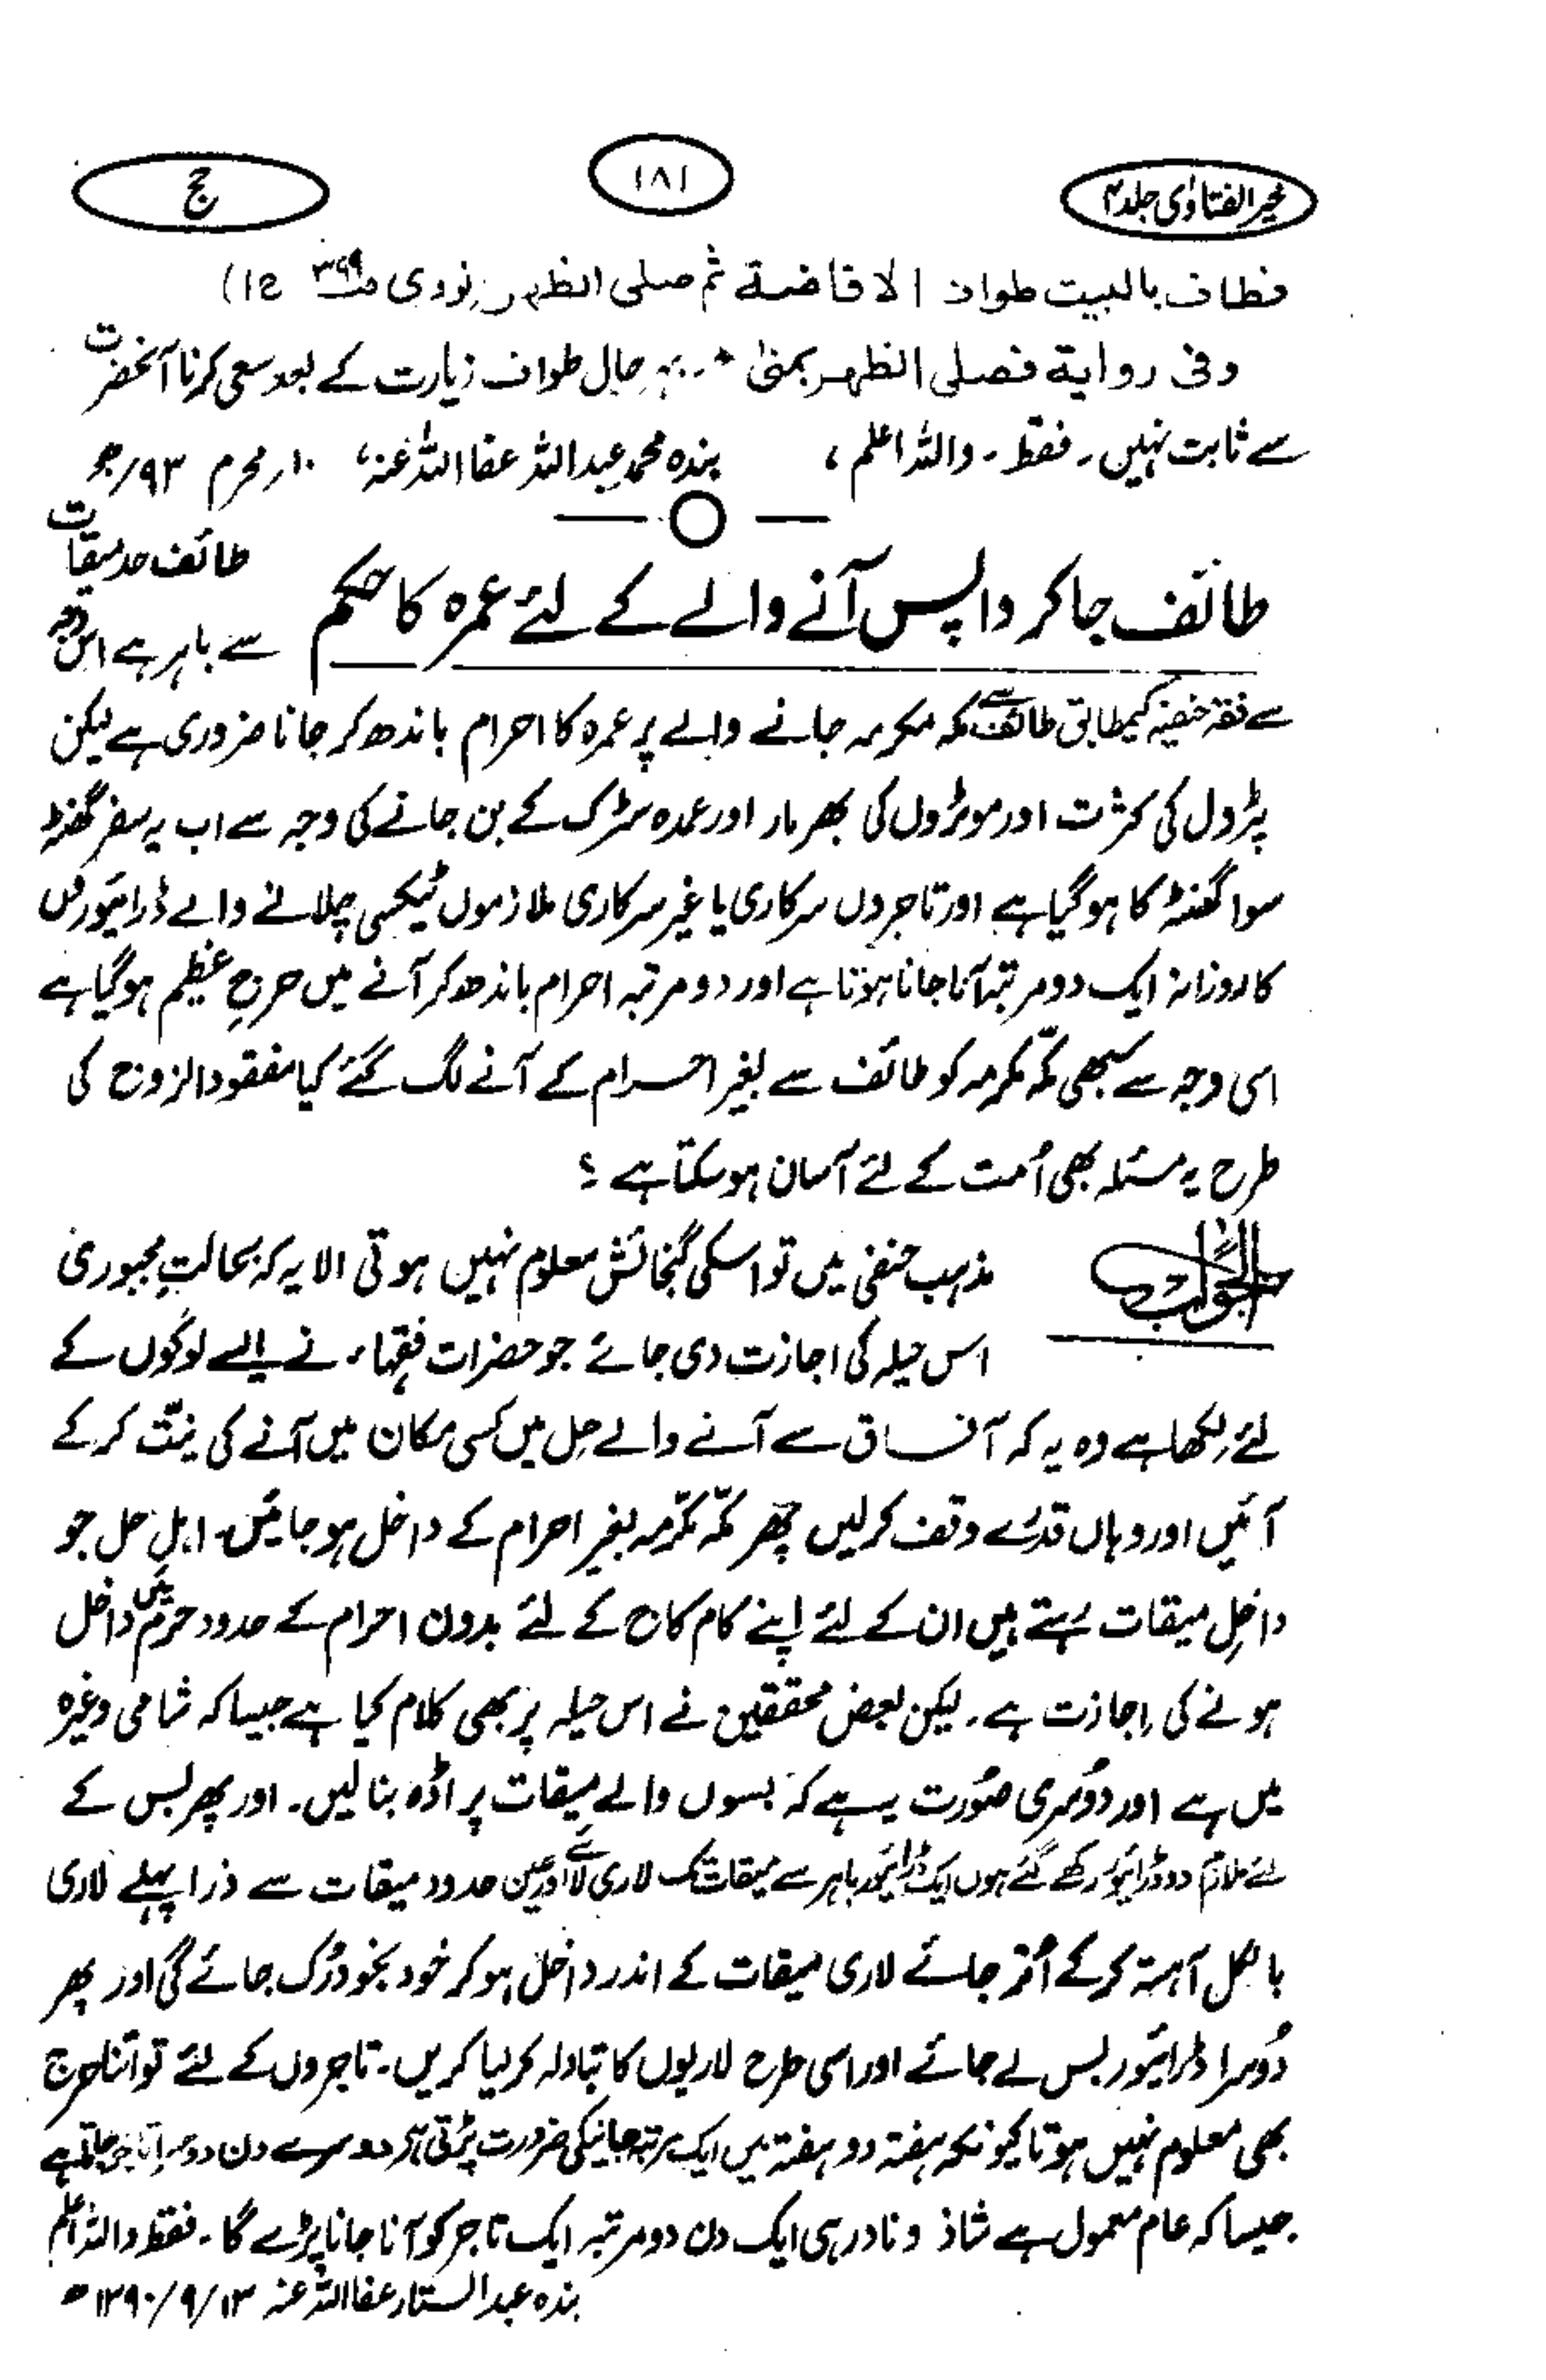 خیر الفتاوٰی جلد ۴
۱۸۱
حج
فطاف بالبیت طواف الافاضة ثم صلی الظهر نووی ص۳۹۹ ج۱)
وفی روایة فصلی الظهر بمنیٰ بہر حال طواف زیارت کے بعد سعی کرنا آنحضرت
سے ثابت نہیں۔ فقط۔ واللہ اعلم، بندہ محمد عبداللہ عفا اللہ عنہ، ۱۰ر محرم ۹۳ر ھ
طائف جاکر واپس آنے والے کے لئے عمرہ کا حکم
طائف حد میقات
سے باہر ہے اس وجہ
سے فقہ حنفیہ کیمطابق طائف سے مکہ مکرمہ جانے والے پر عمرہ کا احرام باندھ کر جانا ضروری ہے لیکن
پٹرول کی کثرت اور موٹروں کی بھرمار اور عمدہ سڑک کے بن جانے کی وجہ سے اب یہ سفر گھنٹہ
سوا گھنٹہ کا ہوگیا ہے اور تاجروں سرکاری یا غیر سرکاری ملازموں ٹیکسی چلانے والے ڈرائیورں
کا روزانہ ایک دو مرتبہ آنا جانا ہوتا ہے اور دو مرتبہ احرام باندھ کر آنے میں حرجِ عظیم ہوگیا ہے
اسی وجہ سے سبھی مکہ مکرمہ کو طائف سے بغیر احرام کے آنے لگ گئے کیا مفقود الزوج کی
طرح یہ مسئلہ بھی اُمت کے لئے آسان ہوسکتا ہے ؟
الجواب
مذہب حنفی میں تو اسکی گنجائش معلوم نہیں ہوتی الا یہ کہ بحالتِ مجبوری
اس حیلہ کی اجازت دی جائے جو حضرات فقہاء نے ایسے لوگوں کے
لئے لکھا ہے وہ یہ کہ آفاق سے آنے والے حِل میں کسی مکان میں آنے کی نیت کرکے
آئیں اور وہاں قدرے وقف کرلیں پھر مکہ مکرمہ بغیر احرام کے داخل ہوجائیں۔ اہلِ حل جو
داخلِ میقات رہتے ہیں ان کے لئے اپنے کام کاج کے لئے بدون احرام کے حدود حرم میں داخل
ہونے کی اجازت ہے۔ لیکن بعض محققین نے اس حیلہ پر بھی کلام کیا ہے جیسا کہ شامی وغیرہ
میں ہے اور دوسری صورت یہ ہے کہ بسوں والے میقات پر اڈہ بنا لیں۔ اور پھر بس کے
لئے ملازم دو ڈرائیور رکھے گئے ہوں ایک ڈرائیور باہر سے میقات تک لاری لائے اور عین حدود میقات سے ذرا پہلے لاری
بالکل آہستہ کرکے اُتر جائے لاری میقات کے اندر داخل ہوکر خود بخود رُک جائے گی اور پھر
دُوسرا ڈرائیور بس لے جائے اور اسی طرح لاریوں کا تبادلہ کرلیا کریں۔ تاجروں کے لئے تو اتنا حرج
بھی معلوم نہیں ہوتا کیونکہ ہفتہ دو ہفتہ میں ایک مرتبہ جانیکی ضرورت پڑتی ہے دوسرے دن
جیسا کہ عام معمول ہے شاذ و نادر ہی ایک دن دو مرتبہ ایک تاجر کو آنا جانا پڑے گا۔ فقط واللہ اعلم
بندہ عبدالستار عفا اللہ عنہ ۱۳/۹/۱۳۹۰ ھ